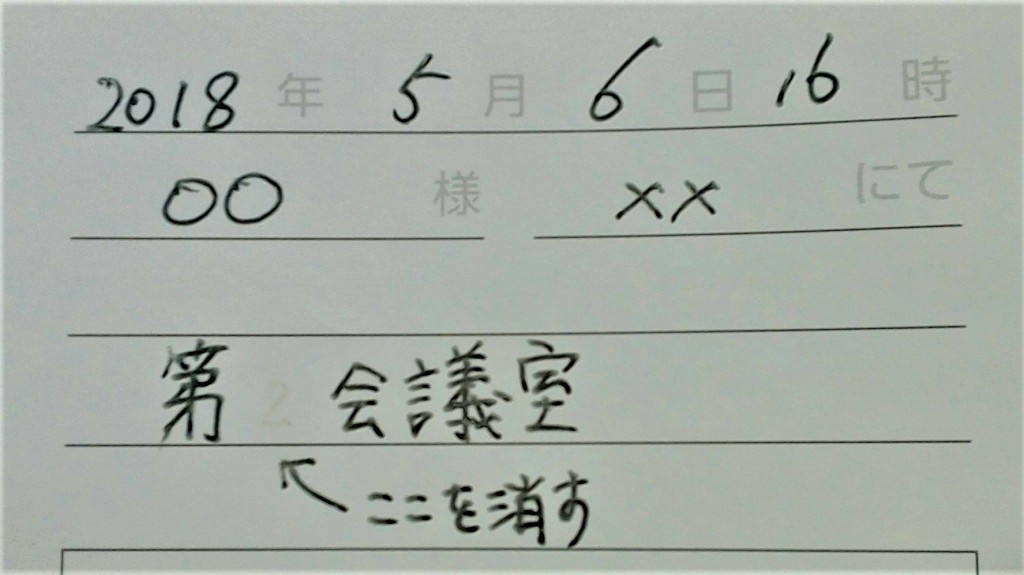 2018年 5月 6日 16時
〇〇 様 ×× にて
第2会議室
↖ここを消す